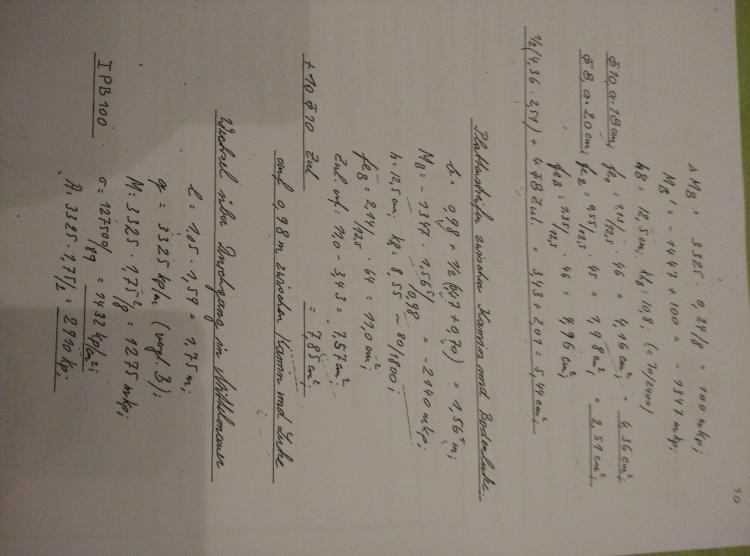 10
Δ MB = 3325 · 0,24/8 = 100 mkp;
MB' = -1447 + 100 = -1347 mkp;
h8 = 12,5 cm, kg = 10,8; (= 70/2400)
Φ 10, a = 18 cm; fe1 = /12,5 · 46 = 4,16 cm² = 4,36 cm²
Φ 8, a = 20 cm; fe2 = 0,55/12,5 · 45 = 1,98 cm² = 2,51 cm²
feB = 1,35/12,5 · 46 = 4,96 cm²
1/2 (4,36 + 2,51) + 4 Φ 8 Zul. = 3,43 + 2,01 = 5,44 cm²
Plattenstreifen zwischen Kamin und Bodenluke
b = 0,98 + 1/2 (0,47 + 0,70) = 1,56⁵ m;
MB = -1347 · 1,56⁵/0,98 = -2140 mkp;
h = 12,5 cm; kg = 8,55 - 80/1800;
feB = 2,14/12,5 · 64 = 11,0 cm²
Zul erf: 11,0 - 3,43 = 7,57 cm²
+ 10 Φ 10 Zul = 7,85 cm²
auf 0,98 m zwischen Kamin und Luke
Wechsel über Durchgang in Mittelmauer
l = 1,05 · 1,59 = 1,75 m;
q = 3325 kp/m (vergl. 3);
M = 3325 · 1,75²/8 = 1275 mkp;
IPB 100 σ = 127500/89 = 1432 kp/cm²;
A = 3325 · 1,75/2 = 2910 kp;